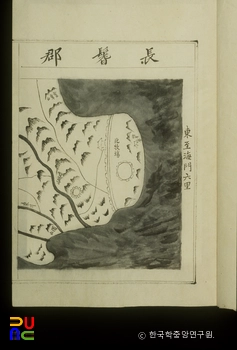 長鬐郡
東至海門六里
PUBC
© 한국학중앙연구원.